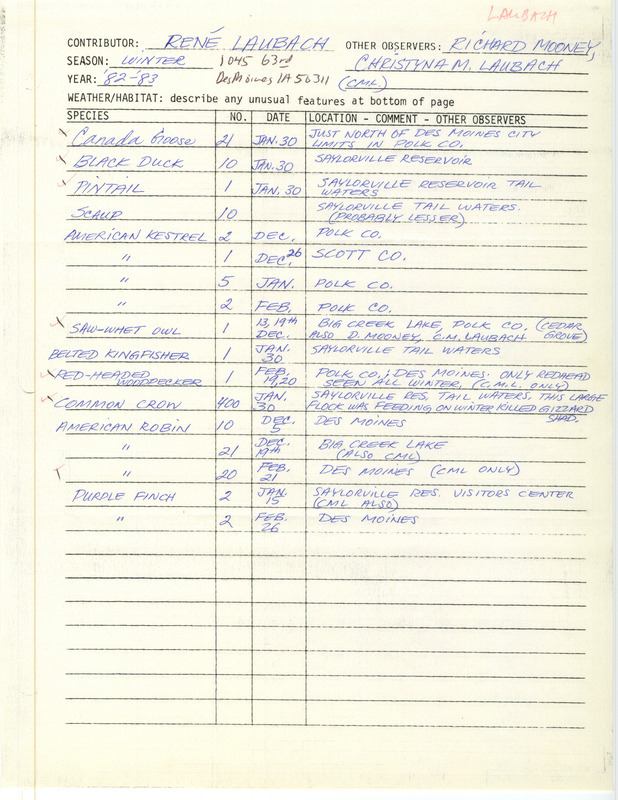 LAUBACH
CONTRIBUTOR: RENÉ LAUBACH OTHER OBSERVERS: RICHARD MOONEY,
SEASON: WINTER 1045 63rd CHRISTYNA M. LAUBACH
YEAR: '82-83 Des Moines IA 50311 (CML)
WEATHER/HABITAT: describe any unusual features at bottom of page
SPECIES NO. DATE LOCATION - COMMENT - OTHER OBSERVERS
Canada Goose 21 JAN. 30 JUST NORTH OF DES MOINES CITY
LIMITS IN POLK CO.
BLACK DUCK 10 JAN. 30 SAYLORVILLE RESERVOIR
PINTAIL 1 JAN. 30 SAYLORVILLE RESERVOIR TAIL
WATERS
SCAUP 10 SAYLORVILLE TAIL WATERS.
(PROBABLY LESSER)
AMERICAN KESTREL 2 DEC. POLK CO.
" 1 DEC. 26 SCOTT CO.
" 5 JAN. POLK CO.
" 2 FEB. POLK CO.
SAW-WHET OWL 1 13, 19th DEC. BIG CREEK LAKE, POLK CO. (CEDAR
ALSO D. MOONEY, C.M. LAUBACH GROVE)
BELTED KINGFISHER 1 JAN. 30 SAYLORVILLE TAIL WATERS
RED-HEADED WOODPECKER 1 FEB. 19,20 POLK CO.; DES MOINES. ONLY REDHEAD
SEEN ALL WINTER, (C.M.L. ONLY)
COMMON CROW 400 JAN. 30 SAYLORVILLE RES. TAIL WATERS. THIS LARGE
FLOCK WAS FEEDING ON WINTER KILLED GIZZARD
SHAD.
AMERICAN ROBIN 10 DEC. 5 DES MOINES
" 21 DEC. 19th BIG CREEK LAKE
(ALSO CML)
" 20 FEB. 21 DES MOINES (CML ONLY)
PURPLE FINCH 2 JAN. 15 SAYLORVILLE RES. VISITORS CENTER
(CML ALSO)
" 2 FEB. 26 DES MOINES